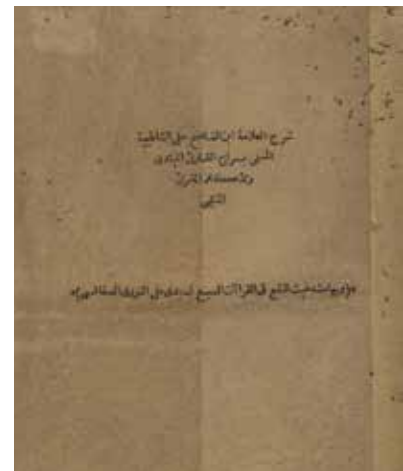 شرح العلامة ابن القاصح على الشاطبية
المسمى سراج القارئ المبتدى
وتذكار المقرئ
المنتهى
وبهامشه غيث النفع فى القراآت السبع لسيدى على النورى الصفاقسى